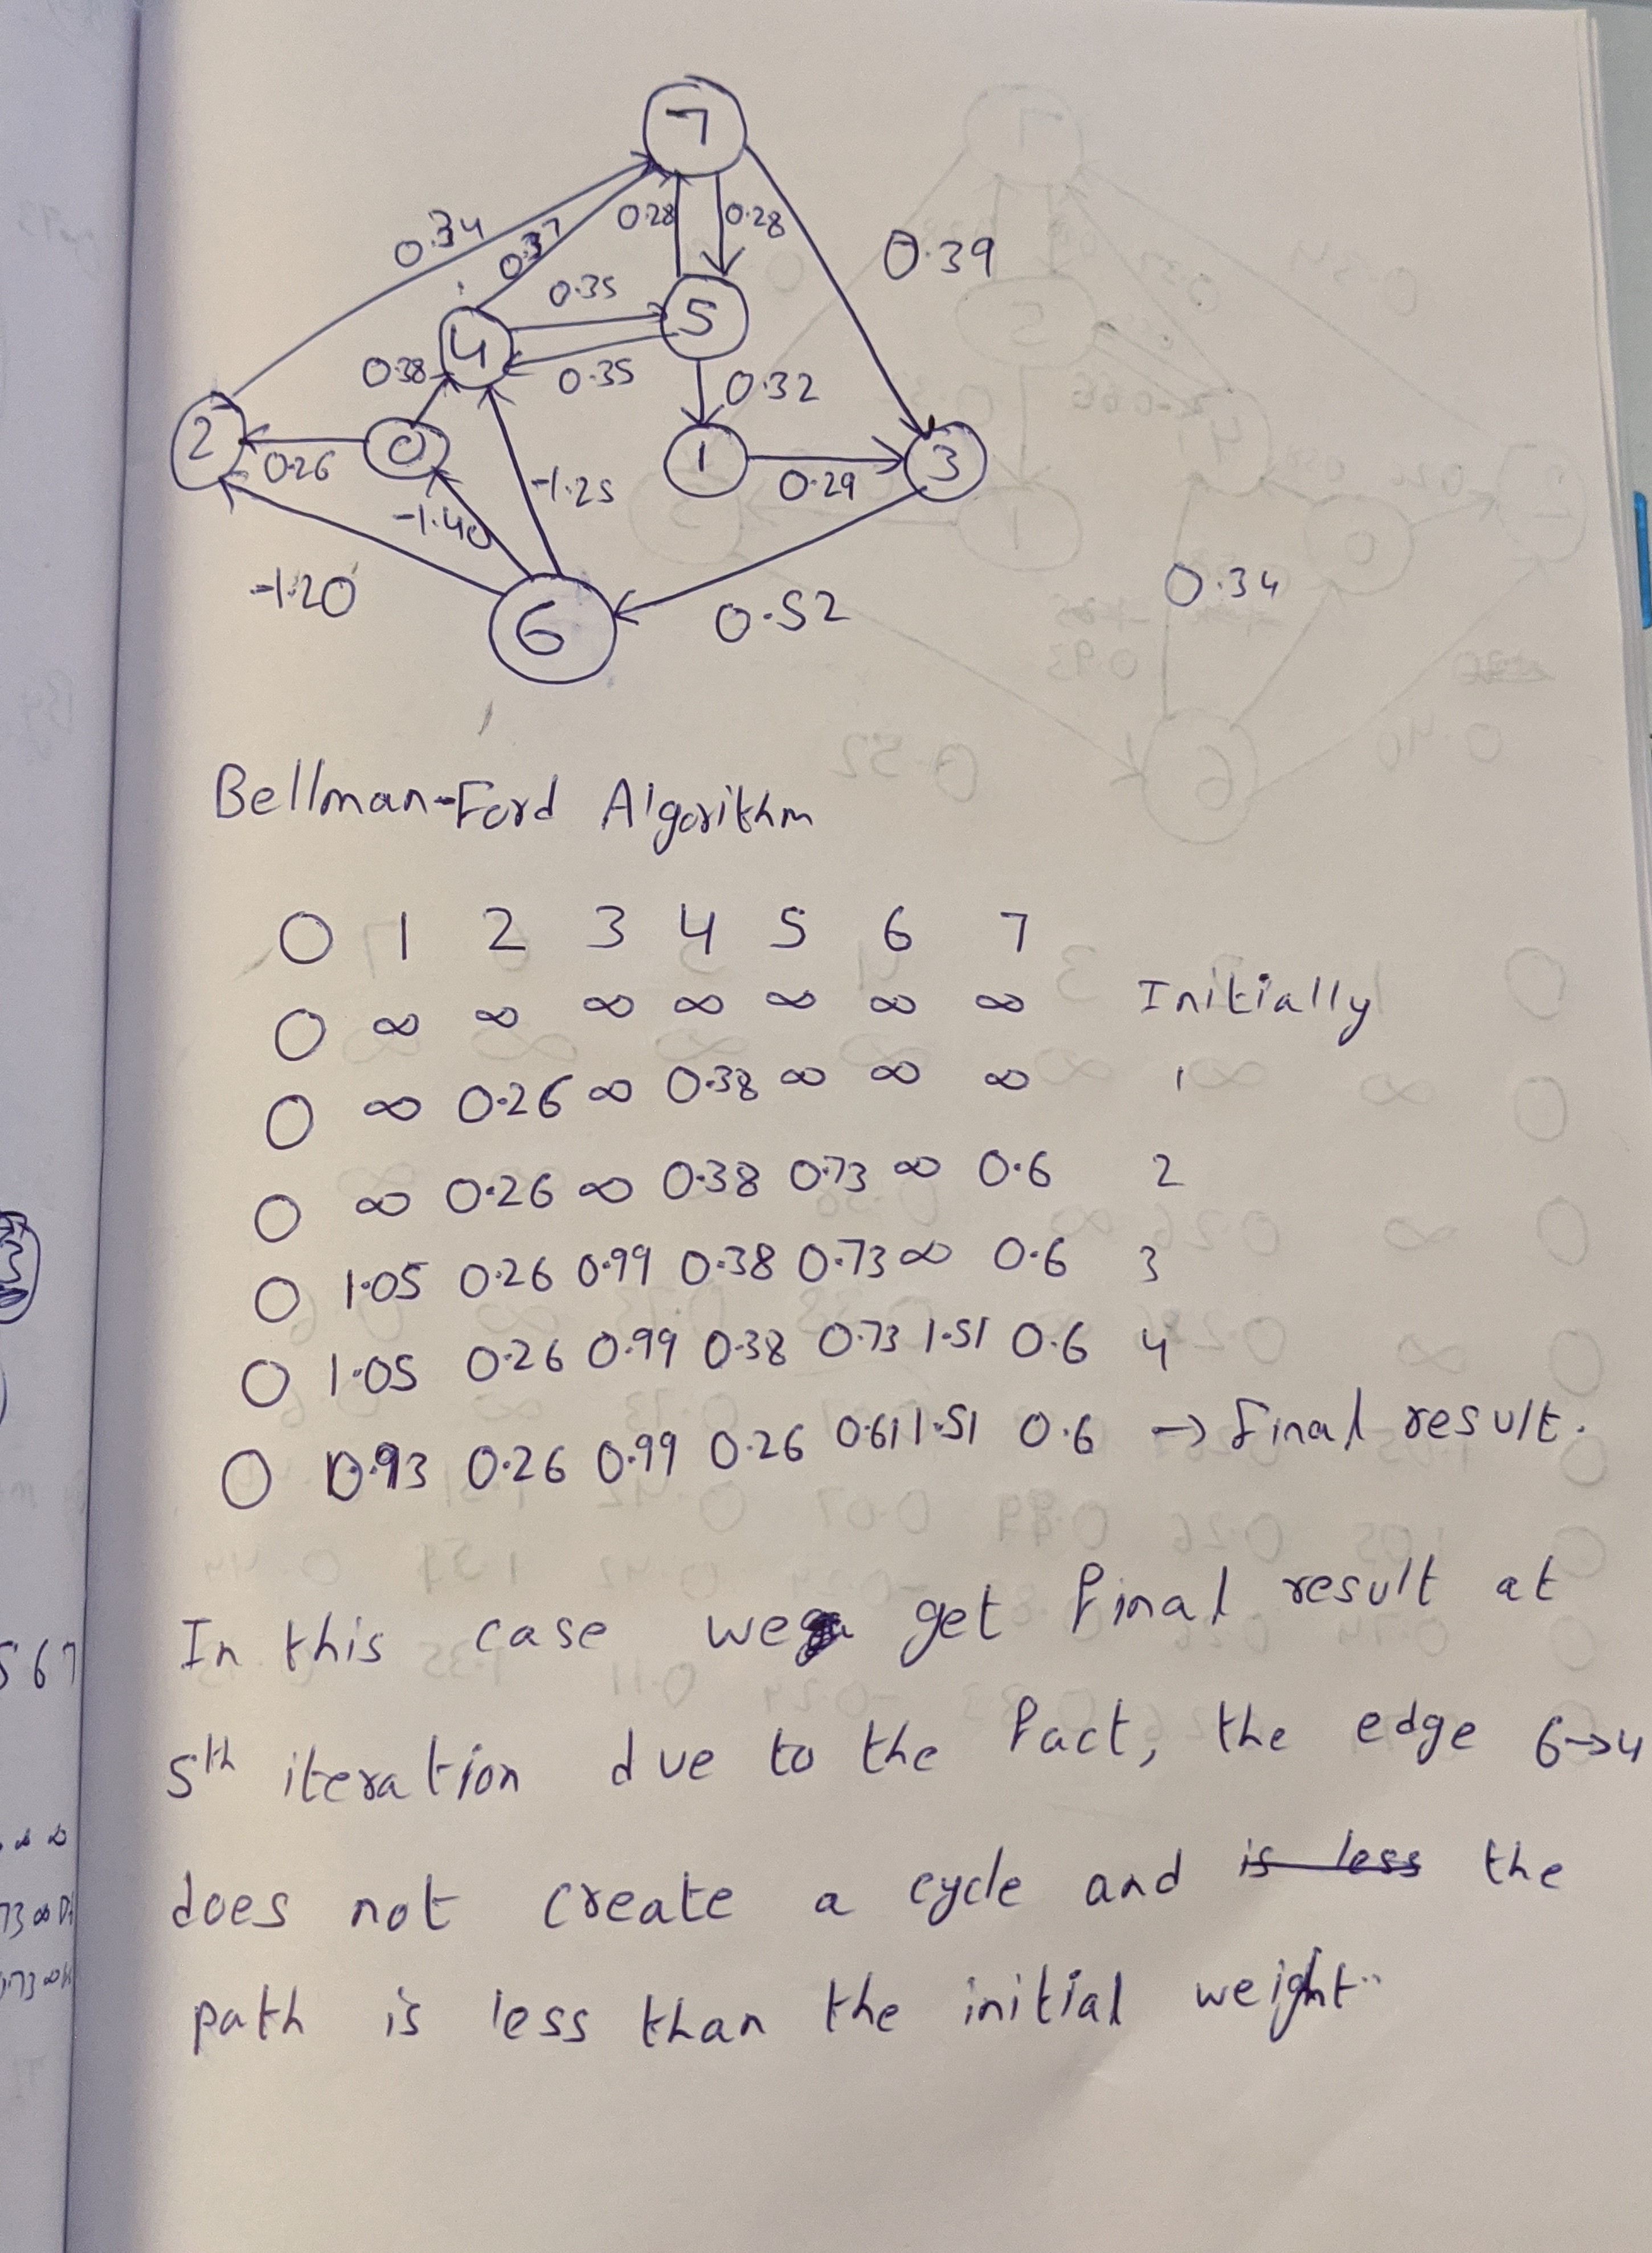 7
0.34
0.37
0.28
0.28
0.39
0.35
5
4
0.38
0.35
0.32
2
0
1
3
0.26
0.29
-1.25
-1.40
-1.20
0.34
6
0.52
Bellman-Ford Algorithm
0 1 2 3 4 5 6 7
0 ∞ ∞ ∞ ∞ ∞ ∞ ∞ Initially
0 ∞ 0.26 ∞ 0.38 ∞ ∞ ∞ 1
0 ∞ 0.26 ∞ 0.38 0.73 ∞ 0.6 2
0 1.05 0.26 0.99 0.38 0.73 ∞ 0.6 3
0 1.05 0.26 0.99 0.38 0.73 1.51 0.6 4
0 0.93 0.26 0.99 0.26 0.61 1.51 0.6 → Final result.
In this case we get final result at
5th iteration due to the fact, the edge 6→4
does not create a cycle and is less the
path is less than the initial weight